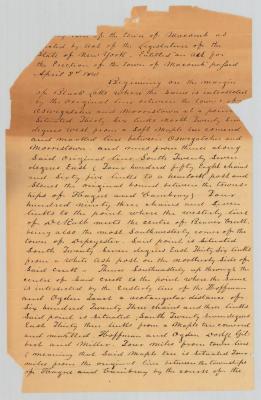 of the town of Macomb as
Act of the Legislature of the
State of New York Entitled an act for
the Erection of the town of Macomb passed
April 3rd 184
Beginning on the margin
of Black Lake where the same is intersected
by the original line between the towns of
Oswegatchie and Morristown at a point
Situated Thirty Six links North Twenty Seven
degrees West from a Soft Maple tree cornered
and marked line between Oswegatchie and
Morristown and runs from thence along
Said original line South Twenty Seven
degrees East, Four hundred fifty eight chains
and Sixty five links to a hemlock post and
Stones the original bound between the towns-
hips of Hague and Cambray, Four
hundred ninety three chains and Seven
links to the point where the westerly line
of DeKalb meets the centre of Beaver Creek,
being also the most Southwesterly corner of the
town of Depeyster. Said point is Situated
South Twenty Seven degrees East Thirty Six links
from a White Ash post on the northerly Side of
Said Creek. Thence Southwesterly up through the
centre of Said Creek to the point where the Same
is intersected by the Easterly line of the Hoffman
and Ogden Tract a rectangular distance of
Six hundred Twenty Three chains and ten links
Said point is Situated South Twenty Seven degrees
East Thirty two links from a Maple tree cornered
and marked Hoffman and Ogden
and Miller. Four miles from town line
(meaning that Said Maple tree is Situated Four
miles from the original line between the townships
of Hague and Cambray by the course of the